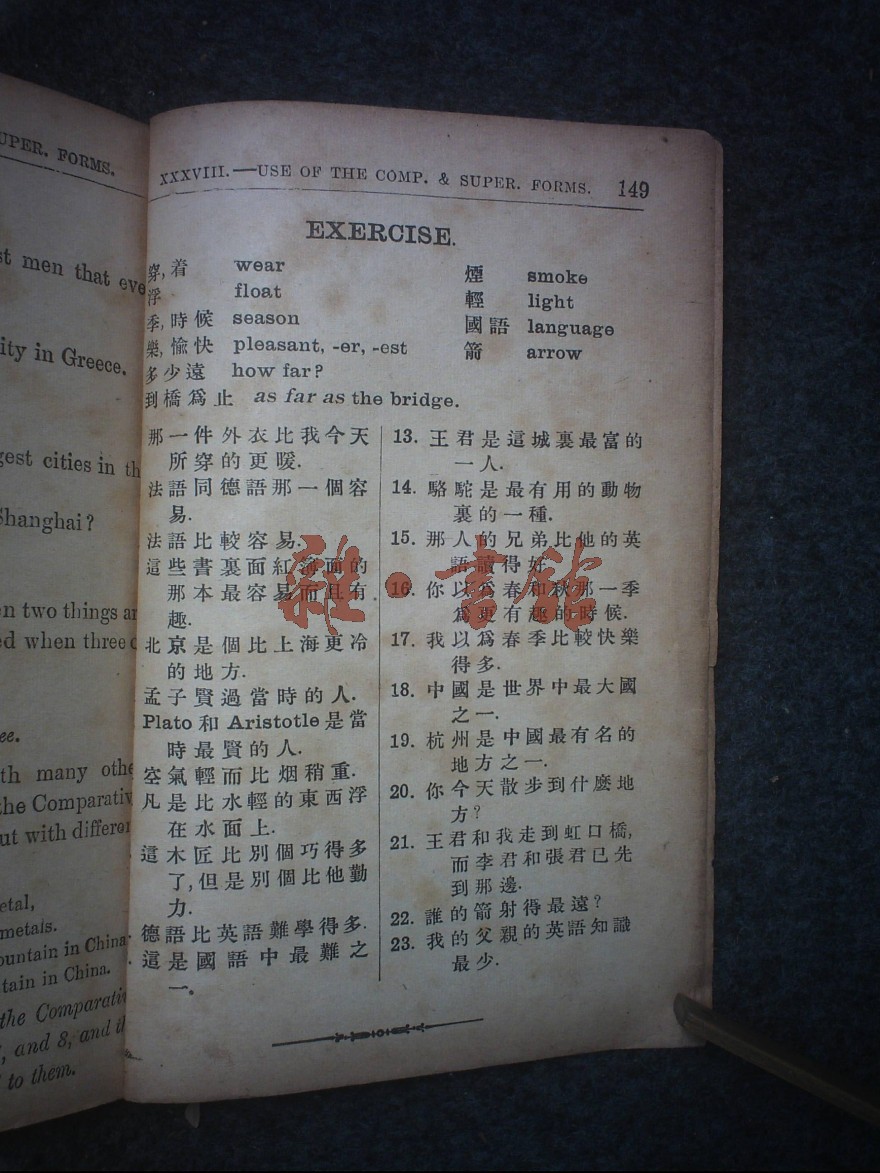 UPER. FORMS.
st men that eve
ity in Greece.
gest cities in th
Shanghai?
en two things ar
ed when three o
ee.
th many othe
the Comparativ
ut with differen
etal,
metals.
ountain in China
tain in China.
the Comparativ
, and 8, and th
to them.
XXXVIII.—USE OF THE COMP. & SUPER. FORMS. 149
EXERCISE.
穿,着 wear
浮 float
季,時候 season
樂,愉快 pleasant, -er, -est
多少遠 how far?
到橋爲止 as far as the bridge.
煙 smoke
輕 light
國語 language
箭 arrow
那一件外衣比我今天
所穿的更暖.
法語同德語那一個容
易.
法語比較容易.
這些書裏面紅封面的
那本最容易而且有
趣.
北京是個比上海更冷
的地方.
孟子賢過當時的人.
Plato 和 Aristotle 是當
時最賢的人.
空氣輕而比烟稍重.
凡是比水輕的東西浮
在水面上.
這木匠比別個巧得多
了,但是別個比他勤
力.
德語比英語難學得多.
這是國語中最難之
一.
13. 王君是這城裏最富的
一人.
14. 駱駝是最有用的動物
裏的一種.
15. 那人的兄弟比他的英
語讀得好.
16. 你以爲春和秋那一季
爲更有趣的時候.
17. 我以爲春季比較快樂
得多.
18. 中國是世界中最大國
之一.
19. 杭州是中國最有名的
地方之一.
20. 你今天散步到什麼地
方?
21. 王君和我走到虹口橋,
而李君和張君已先
到那邊.
22. 誰的箭射得最遠?
23. 我的父親的英語知識
最少.
雜·書館